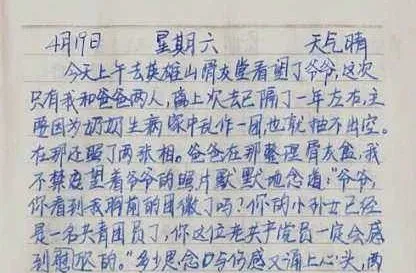 4月19日 星期六 天气晴
今天上午去英雄山骨灰堂看望了爷爷,这次
只有我和爸爸两人,离上次去已隔了一年左右,主
要因为奶奶生病家中乱作一团,也就抽不出空。
在那还照了两张相。爸爸在那整理骨灰盒,我
不禁望着爷爷的照片默默地念道:“爷爷,
你看到我胸前的团徽了吗?你的小孙女已经
是一名共青团员了,你这位老共产党员一定会感
到慰的。”多少思念与伤感又涌上心头,两